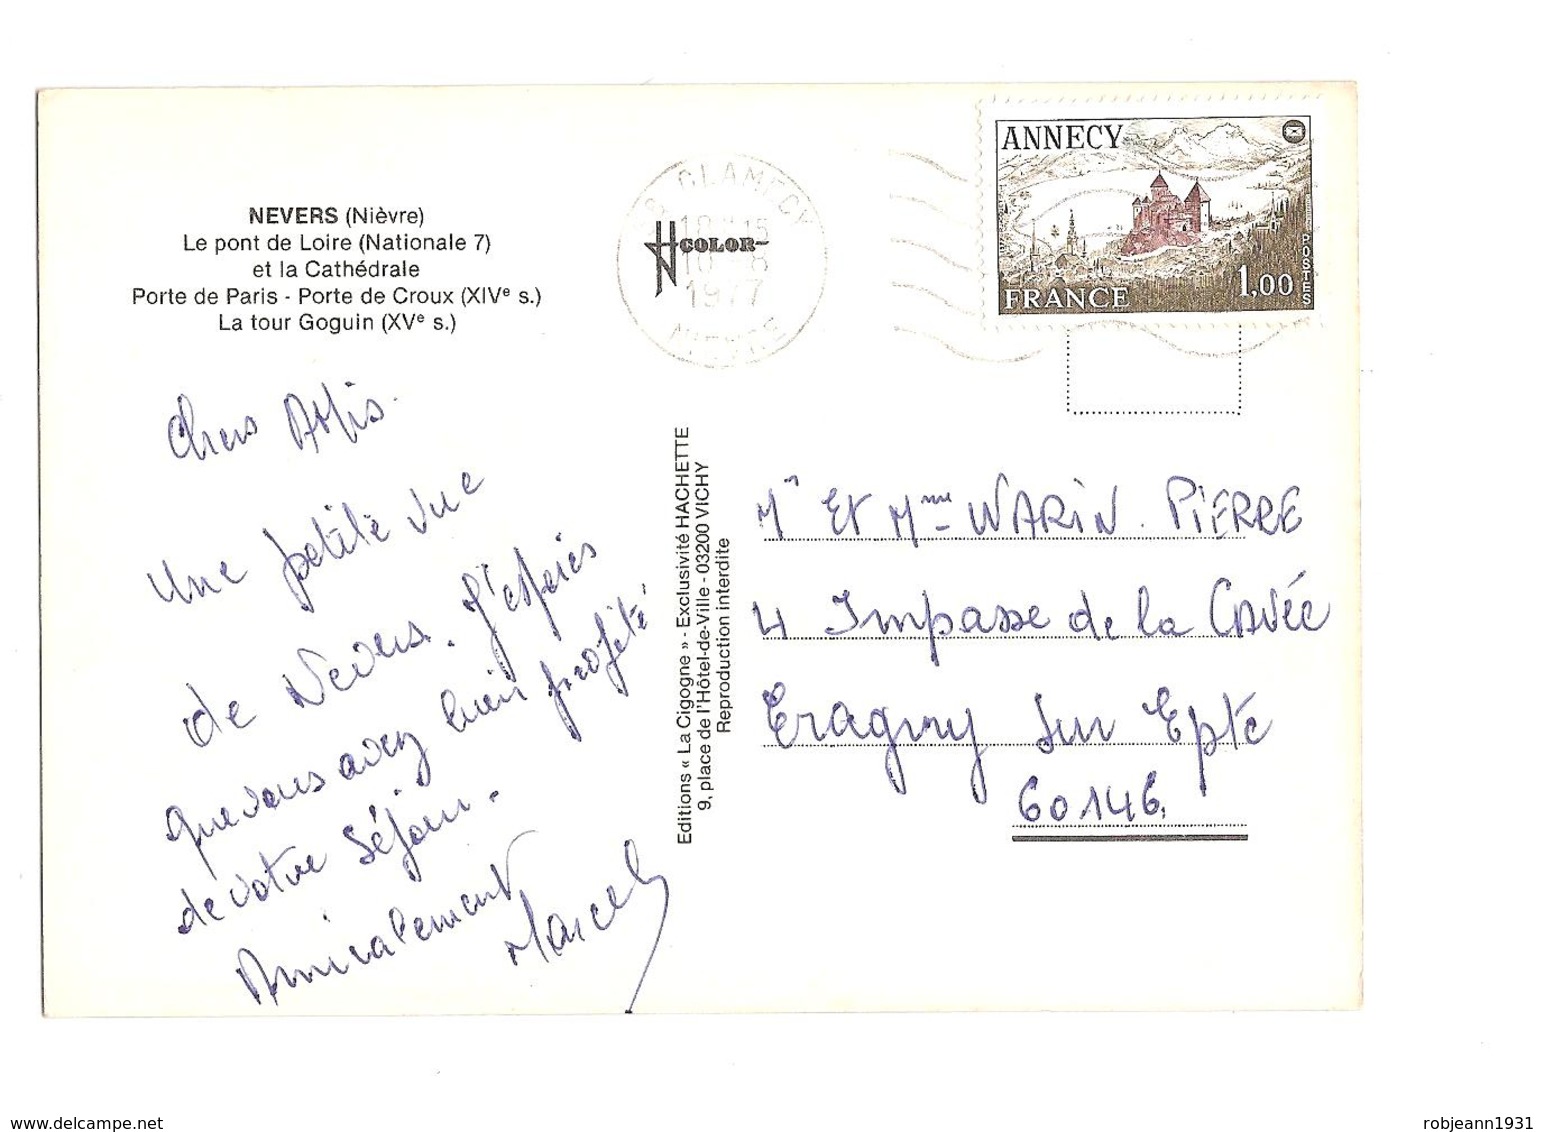 NEVERS (Nièvre)
Le pont de Loire (Nationale 7)
et la Cathédrale
Porte de Paris - Porte de Croux (XIVe s.)
La tour Goguin (XVe s.)
Chers Amis.
Une petite vue
de Nevers. J'espères
que vous avez bien profité
de votre séjour.
Amicalement
Marcel
58 CLAMECY
18 H 15
10 - 8
1977
NIEVRE
HN COLOR
ANNECY
FRANCE
1,00
POSTES
Editions « La Cigogne » - Exclusivité HACHETTE
9, place de l'Hôtel-de-Ville - 03200 VICHY
Reproduction interdite
Mr Et Mme WARIN. PIERRE
4 Impasse de la Cavée
Eragny sur Epte
60146.
delcampe.net
robjeann1931